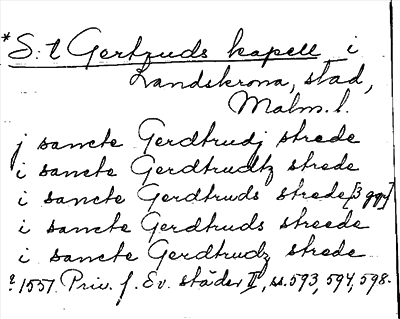 *S:t Gertruds kapell i
Landskrona, stad,
Malm. l.
j sancte Gerdtrudj strede
i sancte Gerdtrudtz strede
i sancte Gerdtruds strede [3 ggr]
i sancte Gerdtruds streede
i sancte Gerdtrudz strede
1557. Priv. f. Sv. städer II, ss. 593, 594, 598.